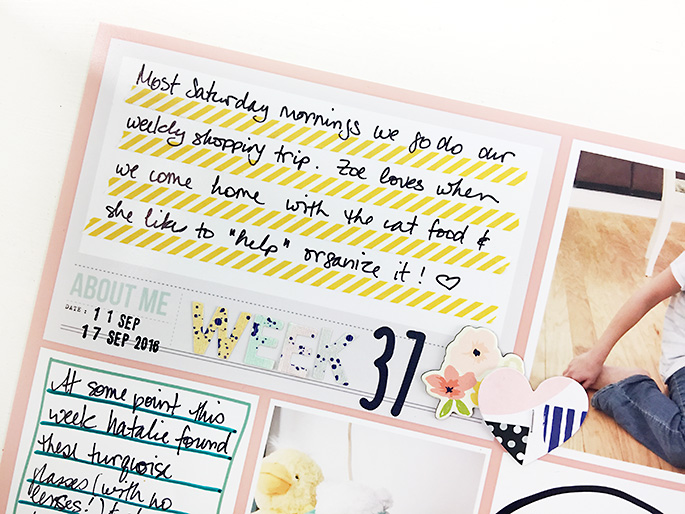 Most Saturday mornings we go do our
weekly shopping trip. Zoe loves when
we come home with the cat food &
she like to "help" organize it! ♡
ABOUT ME
DATE:
11 SEP
17 SEP 2016
WEEK 37
At some point this
week Natalie found
these turquoise
glasses (with no
lenses!)